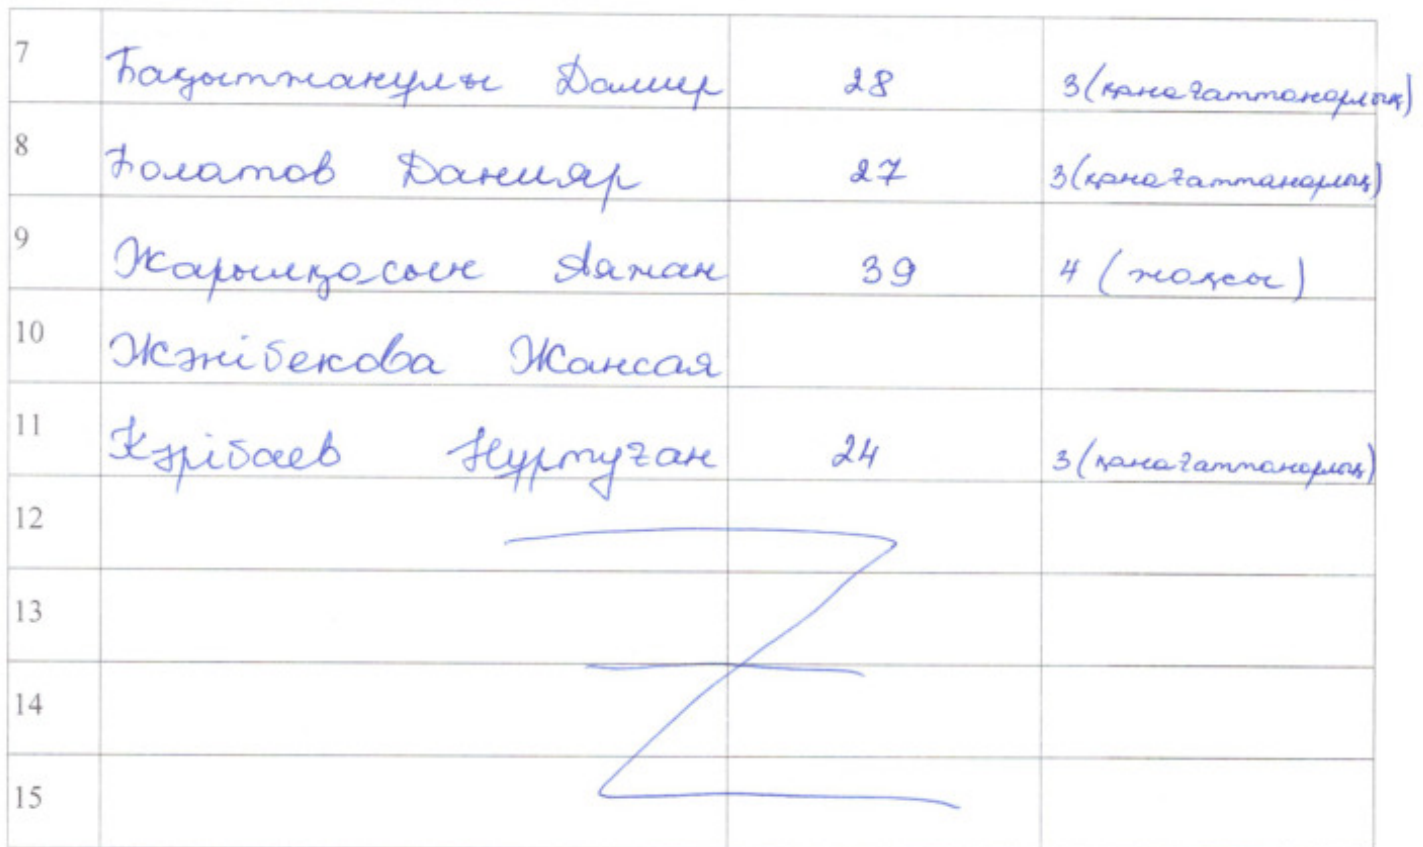 7 Бақытжанұлы Дамир 28 3 (қанағаттанарлық)
8 Болатов Данияр 27 3 (қанағаттанарлық)
9 Жарылқасын Аяжан 39 4 (жақсы)
10 Жәнібекова Жансая
11 Кәрібаев Нұртуған 24 3 (қанағаттанарлық)
12
13
14
15